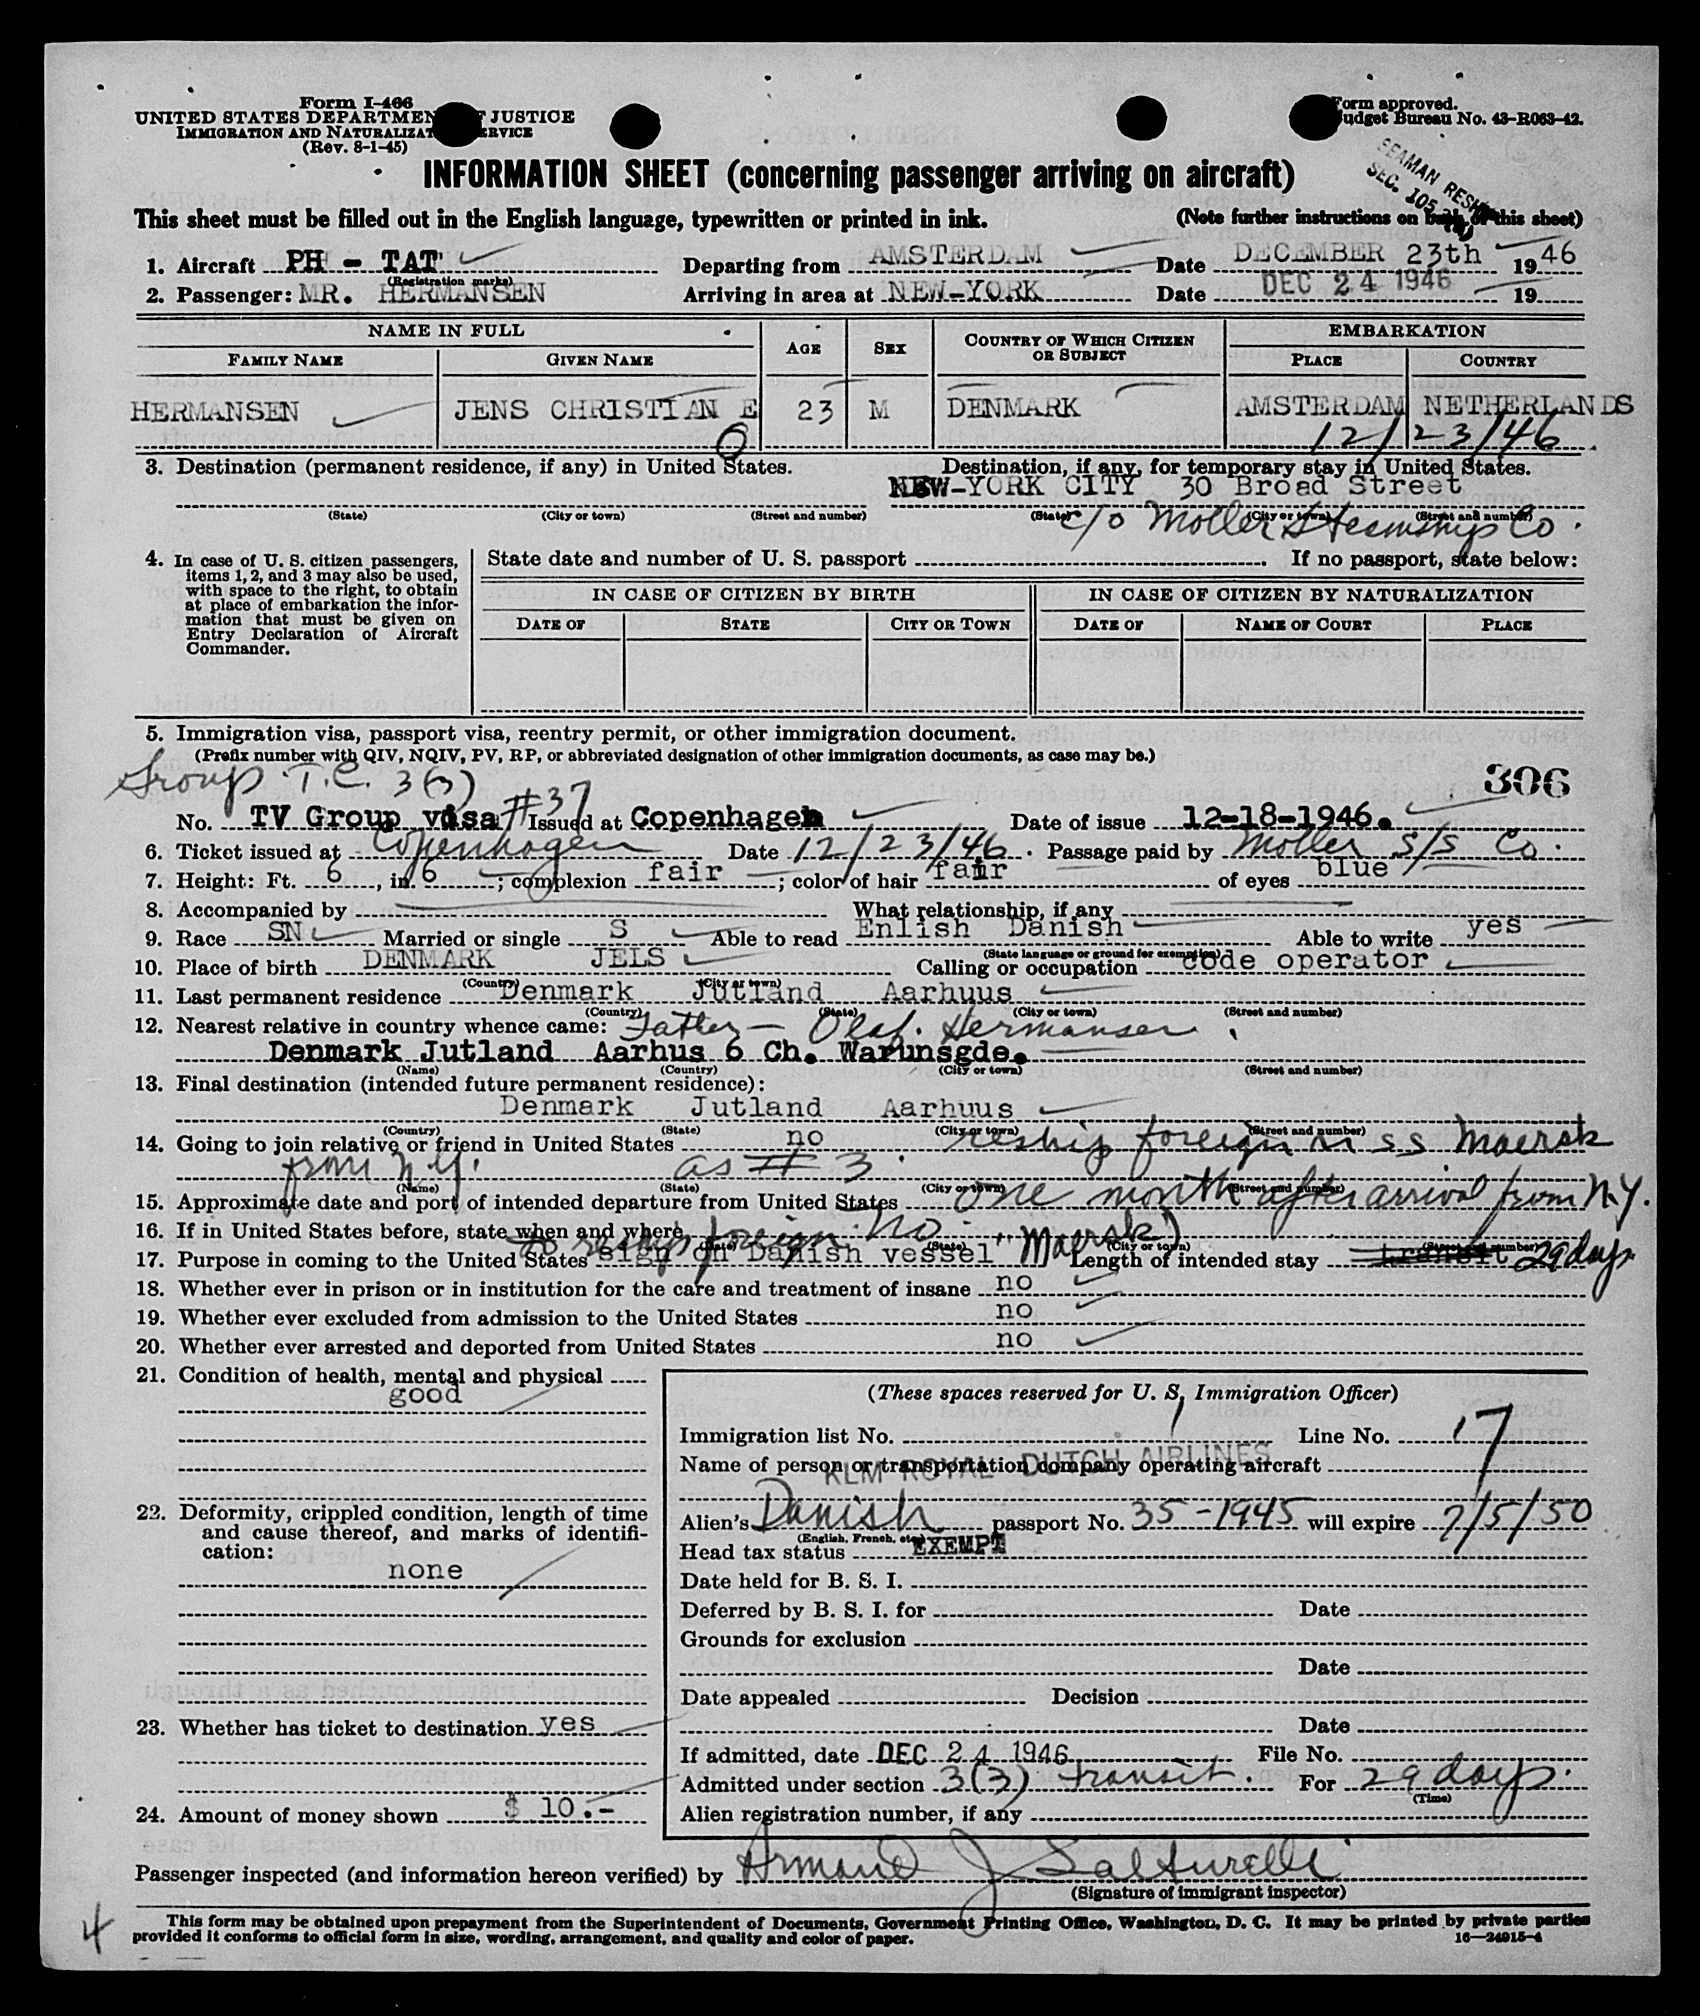 Form I-466
UNITED STATES DEPARTMENT OF JUSTICE
IMMIGRATION AND NATURALIZATION SERVICE
(Rev. 8-1-45)
Form approved.
Budget Bureau No. 43-R063-42.
SEAMAN RESHIP
SEC. 105
INFORMATION SHEET (concerning passenger arriving on aircraft)
This sheet must be filled out in the English language, typewritten or printed in ink. (Note further instructions on back of this sheet)
1. Aircraft PH - TAT Departing from AMSTERDAM Date DECEMBER 23th 1946
(Registration marks)
2. Passenger: MR. HERMANSEN Arriving in area at NEW-YORK Date DEC 24 1946 19
NAME IN FULL AGE SEX COUNTRY OF WHICH CITIZEN OR SUBJECT EMBARKATION
FAMILY NAME GIVEN NAME PLACE COUNTRY
HERMANSEN JENS CHRISTIAN E 23 M DENMARK AMSTERDAM NETHERLANDS
O 12/23/46
3. Destination (permanent residence, if any) in United States. Destination, if any, for temporary stay in United States.
NEW-YORK CITY 30 Broad Street
(State) (City or town) (Street and number) (State) (City or town) (Street and number)
c/o Moller Steamship Co.
4. In case of U. S. citizen passengers, items 1, 2, and 3 may also be used, with space to the right, to obtain at place of embarkation the information that must be given on Entry Declaration of Aircraft Commander.
State date and number of U. S. passport If no passport, state below:
IN CASE OF CITIZEN BY BIRTH IN CASE OF CITIZEN BY NATURALIZATION
DATE OF STATE CITY OR TOWN DATE OF NAME OF COURT PLACE
5. Immigration visa, passport visa, reentry permit, or other immigration document.
(Prefix number with QIV, NQIV, PV, RP, or abbreviated designation of other immigration documents, as case may be.)
Group T.C. 3(3) 306
No. TV Group visa #37 Issued at Copenhagen Date of issue 12-18-1946.
6. Ticket issued at Copenhagen Date 12/23/46. Passage paid by Moller S/S Co.
7. Height: Ft. 6, in. 6; complexion fair; color of hair fair of eyes blue
8. Accompanied by What relationship, if any
9. Race SN Married or single S Able to read Enlish Danish Able to write yes
(State language or ground for exemption)
10. Place of birth DENMARK JELS Calling or occupation code operator
(Country) (City or town)
11. Last permanent residence Denmark Jutland Aarhuus
(Country) (State) (City or town) (Street and number)
12. Nearest relative in country whence came: Father - Olaf. Hermansen.
Denmark Jutland Aarhus 6 Ch. Warunsgde.
(Name) (Country) (City or town) (Street and number)
13. Final destination (intended future permanent residence):
Denmark Jutland Aarhuus
(Country) (State) (City or town) (Street and number)
14. Going to join relative or friend in United States no reship foreign on SS Maersk
from N.Y. as # 3.
(Name) (State) (City or town) (Street and number)
15. Approximate date and port of intended departure from United States one month after arrival from N.Y.
16. If in United States before, state when and where No.
(State) (State) (City or town) (Street and number)
to reship foreign "Maersk")
17. Purpose in coming to the United States sign on Danish vessel Length of intended stay transit 29 days
18. Whether ever in prison or in institution for the care and treatment of insane no
19. Whether ever excluded from admission to the United States no
20. Whether ever arrested and deported from United States no
21. Condition of health, mental and physical
good
22. Deformity, crippled condition, length of time and cause thereof, and marks of identification:
none
23. Whether has ticket to destination yes
24. Amount of money shown $ 10.-
(These spaces reserved for U. S. Immigration Officer)
Immigration list No. 1 Line No. 17
Name of person or transportation company operating aircraft
KLM ROYAL DUTCH AIRLINES
Alien's Danish passport No. 35-1945 will expire 7/5/50
(English, French, etc.)
Head tax status EXEMPT
Date held for B. S. I.
Deferred by B. S. I. for Date
Grounds for exclusion
Date
Date appealed Decision
Date
If admitted, date DEC 24 1946 File No.
Admitted under section 3(3) transit. For 29 days.
(Time)
Alien registration number, if any
Passenger inspected (and information hereon verified) by Armand J Salturelli
(Signature of immigrant inspector)
4
This form may be obtained upon prepayment from the Superintendent of Documents, Government Printing Office, Washington, D. C. It may be printed by private parties
provided it conforms to official form in size, wording, arrangement, and quality and color of paper. 16—24915-4